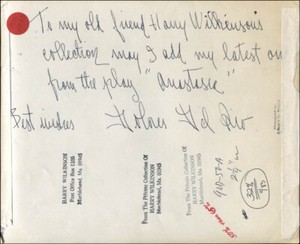 To my old friend Harry Wilkinson's
collection may I add my latest one
from the play "Anastasia"
Best wishes
HARRY WILKINSON
Post Office Box 1105
Marblehead, Ma. 01945
From The Private Collection Of
HARRY WILKINSON
Marblehead, Ma. 01945
From The Private Collection Of
HARRY WILKINSON
Marblehead, Ma. 01945
910-57-A